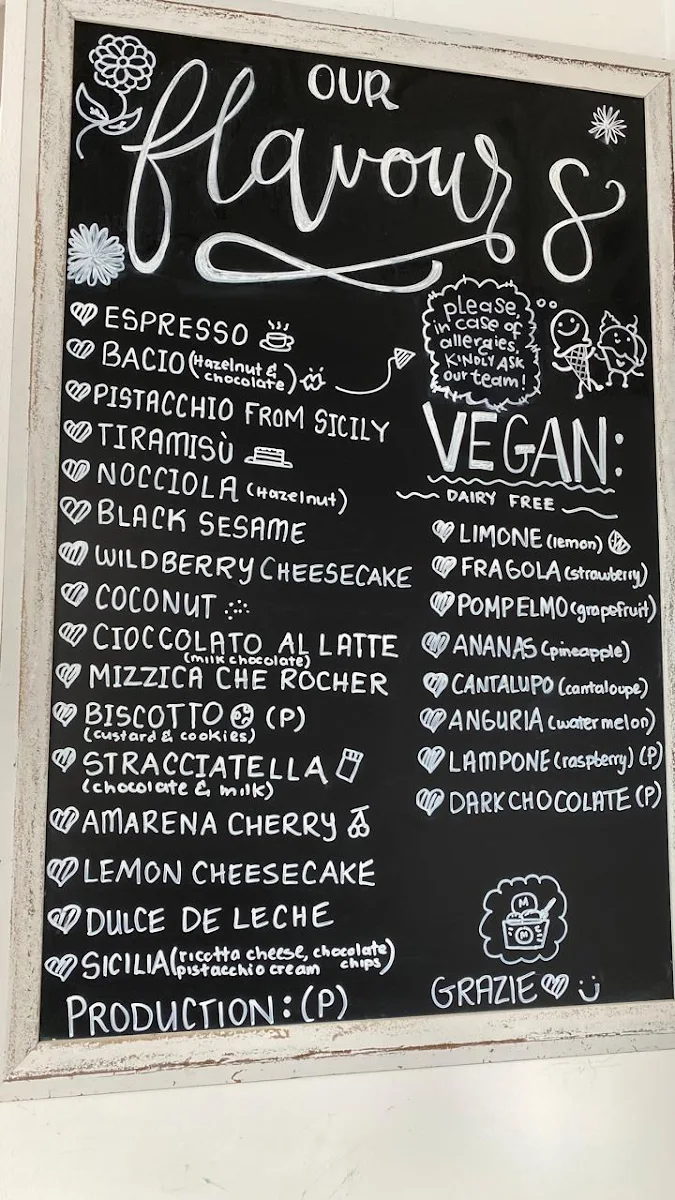 OUR
flavours
ESPRESSO
BACIO (Hazelnut &
chocolate)
PISTACCHIO FROM SICILY
TIRAMISÙ
NOCCIOLA (Hazelnut)
BLACK SESAME
WILDBERRY CHEESECAKE
COCONUT
CIOCCOLATO AL LATTE
(milk chocolate)
MIZZICA CHE ROCHER
BISCOTTO (P)
(custard & cookies)
STRACCIATELLA
(chocolate & milk)
AMARENA CHERRY
LEMON CHEESECAKE
DULCE DE LECHE
SICILIA (ricotta cheese, chocolate
pistacchio cream chips)
PRODUCTION: (P)
please,
in case of
allergies,
KINDLY ASK
our team!
VEGAN:
DAIRY FREE
LIMONE (lemon)
FRAGOLA (strawberry)
POMPELMO (grapefruit)
ANANAS (pineapple)
CANTALUPO (cantaloupe)
ANGURIA (watermelon)
LAMPONE (raspberry) (P)
DARK CHOCOLATE (P)
M
M
GRAZIE